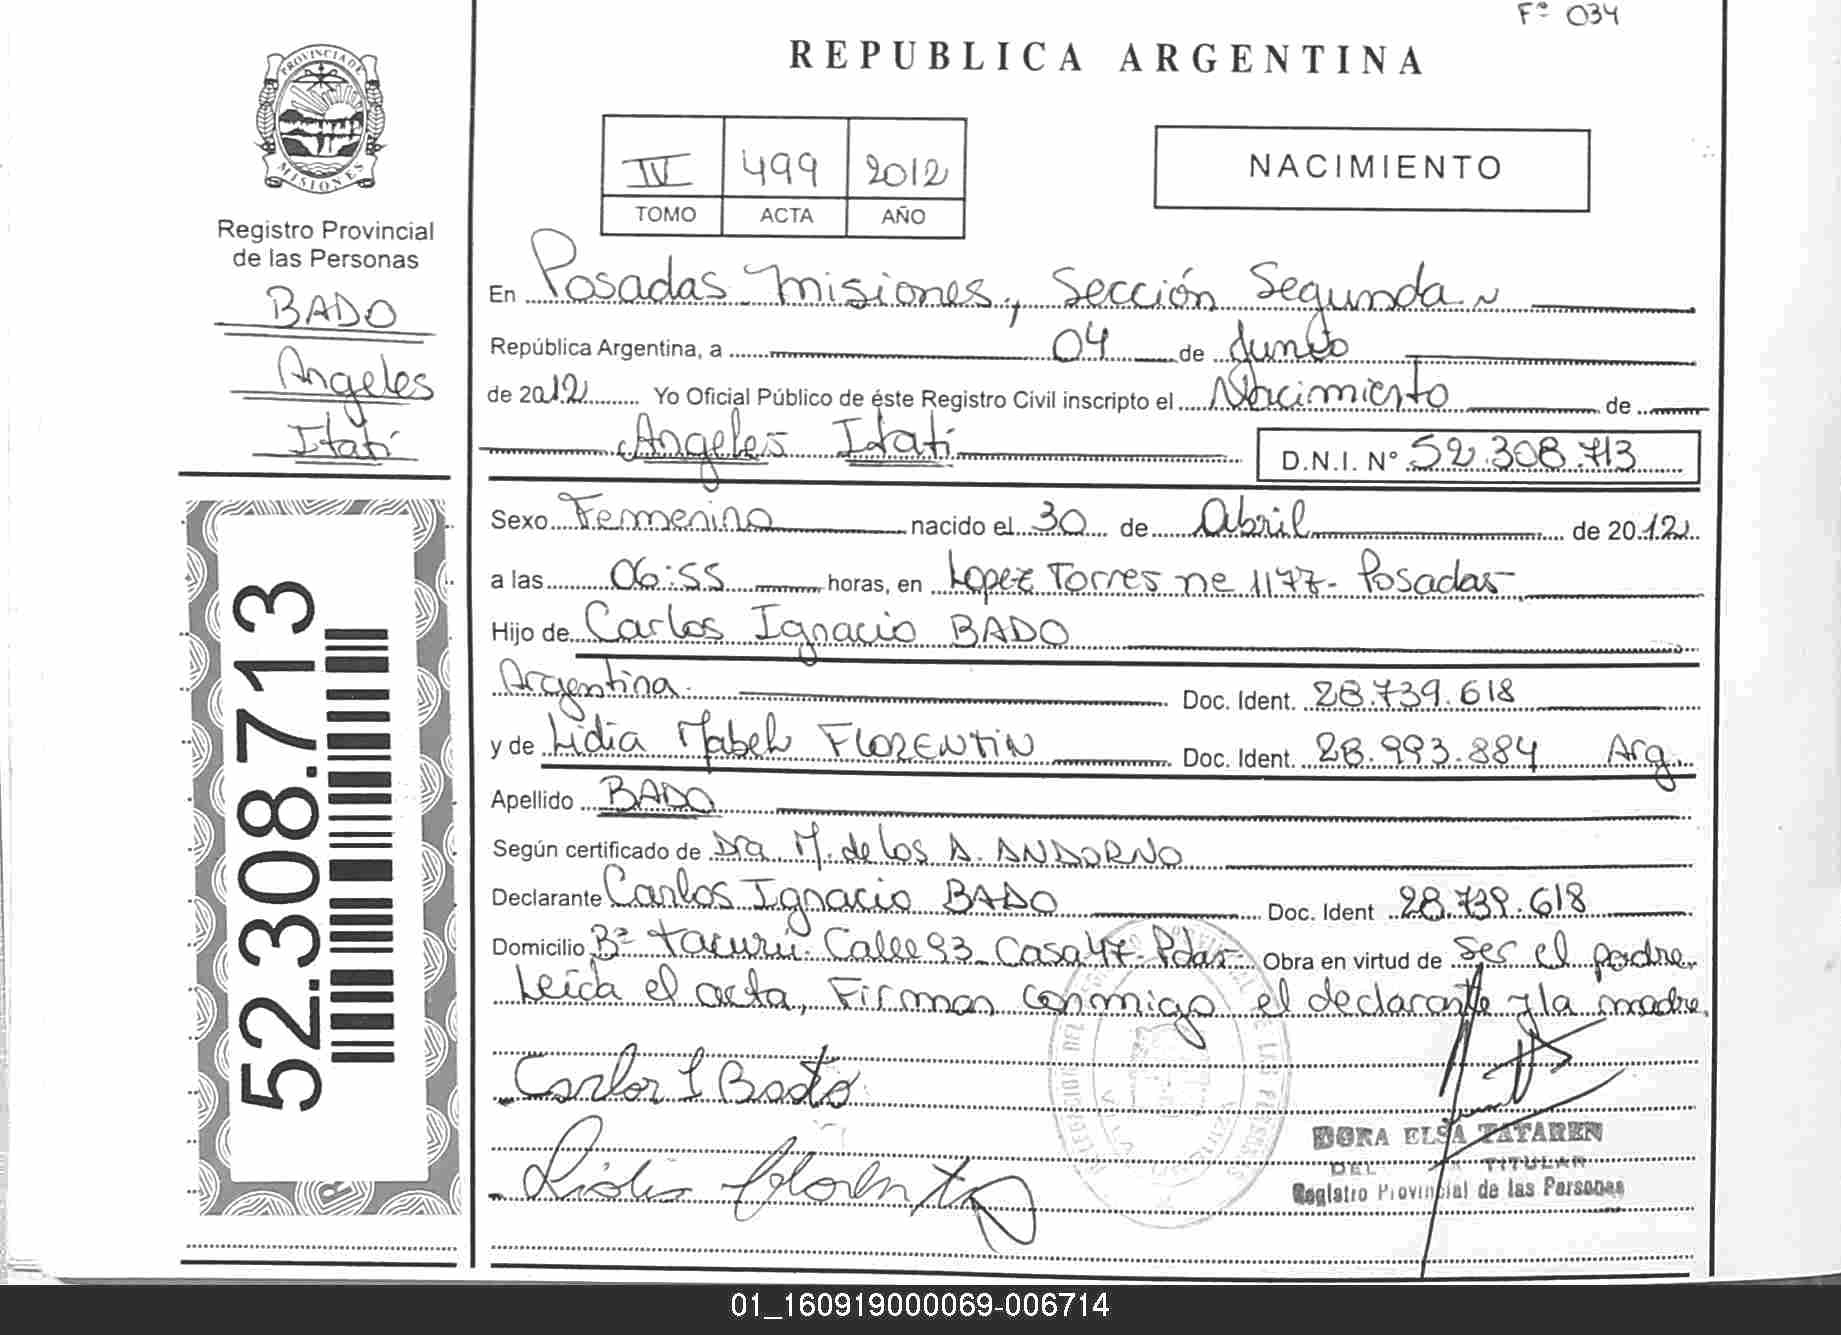 Fº 034
REPUBLICA ARGENTINA
PROVINCIA DE
MISIONES
IV 499 2012
TOMO ACTA AÑO
NACIMIENTO
Registro Provincial
de las Personas
BADO
Angeles
Itatí
52.308.713
En Posadas Misiones, Sección Segunda
República Argentina, a 04 de Junio
de 2012 Yo Oficial Público de éste Registro Civil inscripto el Nacimiento de
Angeles Itatí D.N.I. N° 52.308.713
Sexo Femenino nacido el 30 de Abril de 2012
a las 06:55 horas, en Lopez Torres ne 1177- Posadas
Hijo de Carlos Ignacio BADO
Argentina Doc. Ident. 28.739.618
y de Lidia Mabel FLORENTIN Doc. Ident. 28.993.884 Arg.
Apellido BADO
Según certificado de Dra M. de los A. ANDORNO
Declarante Carlos Ignacio BADO Doc. Ident 28.739.618
Domicilio Bº Tacurú. Calle 93 Casa 47- Pdas Obra en virtud de ser el padre.
Leída el acta, Firman conmigo el declarante y la madre.
Carlos I Bado
Lidia Florentin
DORA ELSA TATAREN
TITULAR
Registro Provincial de las Personas
01_160919000069-006714